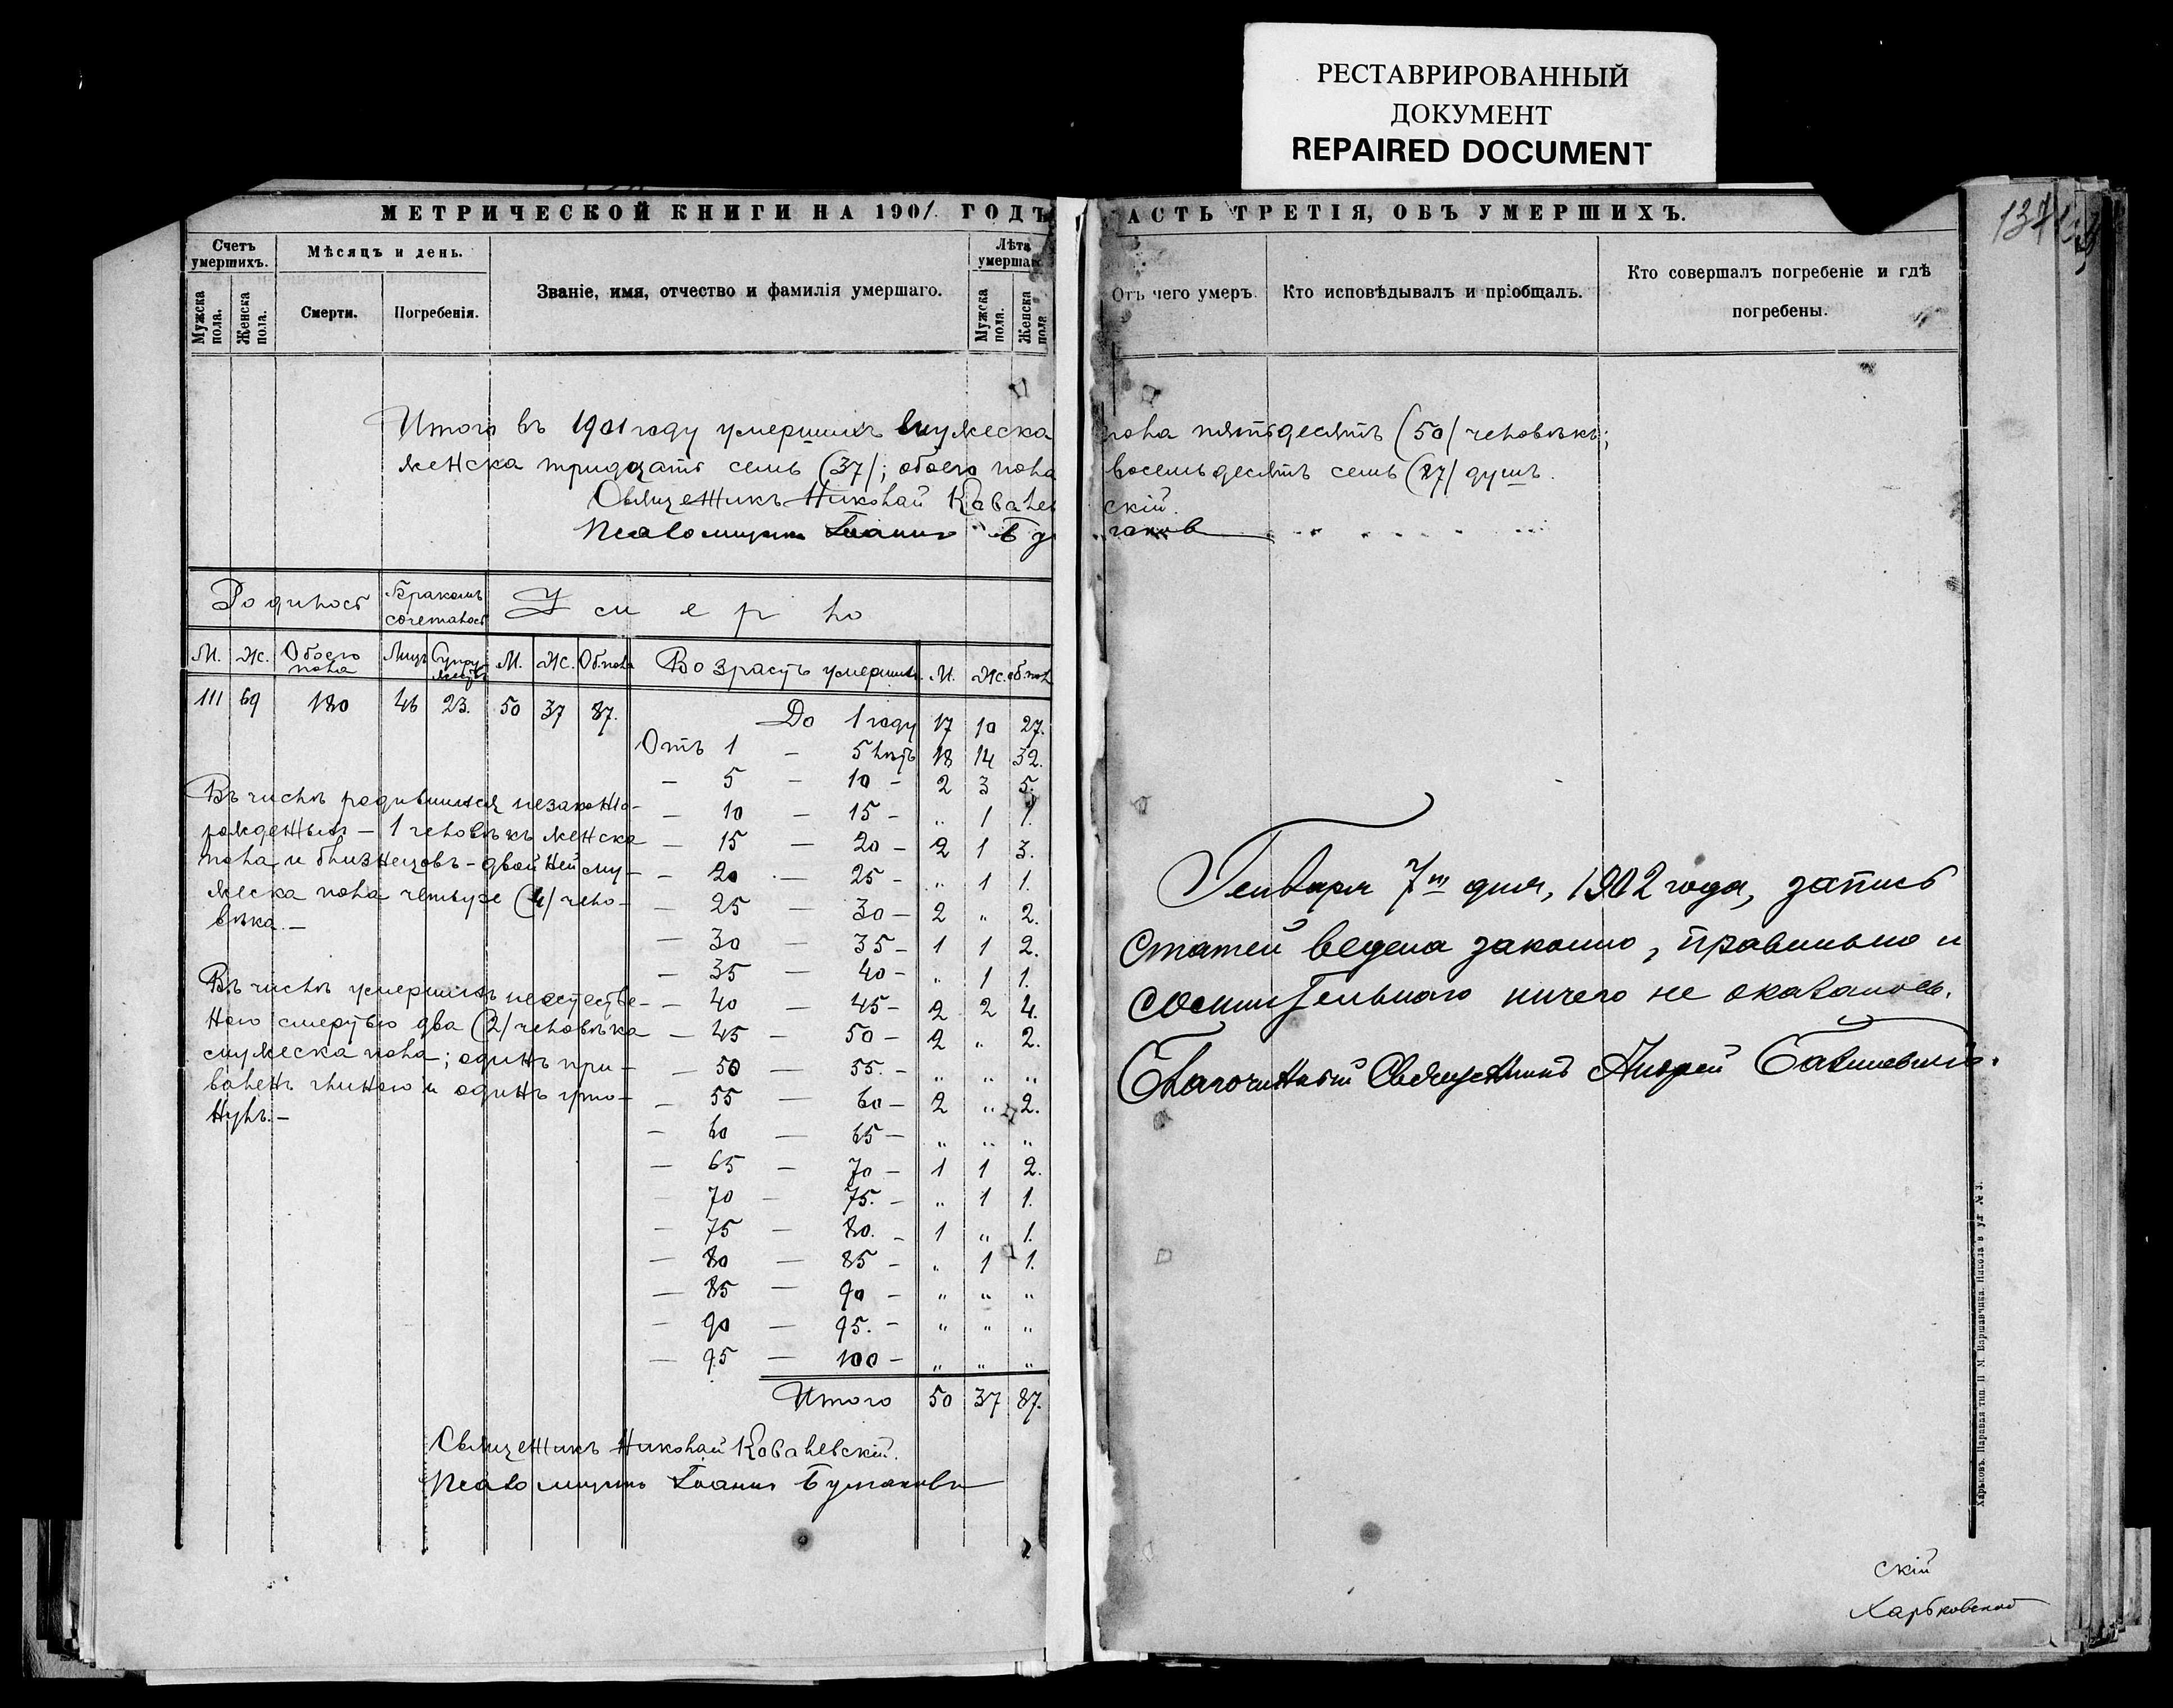 РЕСТАВРИРОВАННЫЙ
ДОКУМЕНТ
REPAIRED DOCUMENT
МЕТРИЧЕСКОЙ КНИГИ НА 1901. ГОДЪ
АСТЬ ТРЕТІЯ, ОБЪ УМЕРШИХЪ.
137
Счетъ умершихъ.
Мѣсяцъ и день.
Званіе, имя, отчество и фамилія умершаго.
Лѣта умершаг
Мужска пола.
Женска пола.
Смерти.
Погребенія.
Мужска пола.
Женска пола
Отъ чего умеръ.
Кто исповѣдывалъ и пріобщалъ.
Кто совершалъ погребеніе и гдѣ
погребены.
Итого въ 1901 году умершихъ мужеска пола пятьдесятъ (50) человѣкъ;
женска тридцать семь (37); обоего пола восемьдесятъ семь (87) душъ.
Священникъ Николай Ковалевскій.
Псаломщикъ Іоаннъ
Родилось
Бракомъ сочеталось
Умерло
М. Ж. Обоего пола Лицъ Супружествъ М. Ж. Об. пола Возрастъ умершихъ. М. Ж. об. пол
111 69 180 46 23. 50 37 87.
До 1 году 17 10 27.
Отъ 1 — 5 лѣтъ 18 14 32.
— 5 — 10 — 2 3 5.
— 10 — 15 — „ 1 1.
— 15 — 20 — 2 1 3.
— 20 — 25 — „ 1 1.
— 25 — 30 — 2 „ 2.
— 30 — 35 — 1 1 2.
— 35 — 40 — „ 1 1.
— 40 — 45 — 2 2 4.
— 45 — 50 — 2 „ 2.
— 50 — 55. — „ „ „
— 55 — 60 — 2 „ 2.
— 60 — 65 — „ „ „
— 65 — 70 — 1 1 2.
— 70 — 75. — „ 1 1.
— 75 — 80. — 1 „ 1.
— 80 — 85 — „ 1 1.
— 85 — 90 — „ „ „
— 90 — 95. — „ „ „
— 95 — 100 — „ „ „
Итого 50 37 87.
Въ числѣ родившихся незаконно-
рожденныхъ — 1 человѣкъ женска
пола и близнецовъ - двойней му-
жеска пола четыре (4) чело-
вѣка. —
Въ числѣ умершихъ неестестве-
ною смертью два (2) человѣка
мужеска пола; одинъ при-
валенъ глиною и одинъ уто-
нулъ. —
Священникъ Николай Ковалевскій.
Псаломщикъ Іоаннъ
Генваря 7го дня, 1902 года, запись
статей ведена законно, правильно и
сомнительнаго ничего не оказалось.
Благочинный Священникъ Андрей
скій
Харьковской